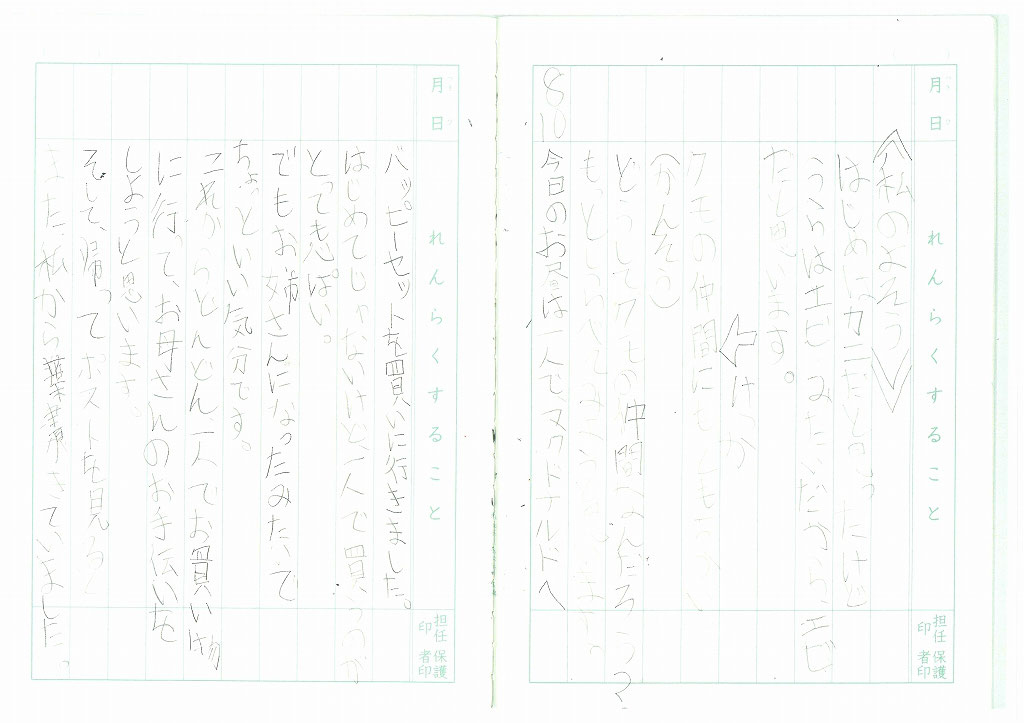 月 日
れんらくすること
担任印 保護者印
《私のよそう》
はじめに、カニだと思ったけど
うくらはエビみたいだから、エビ
だと思います。
けっか
クモの仲間
(かんそう)
どうしてクモの仲間なんだろう?
もっとしらべて
8 10
今日のお昼は一人で、マクドナルドへ
月 日
れんらくすること
担任印 保護者印
ハッピーセットを買いに行きました。
はじめてじゃないけど、一人で買うのが
とっても忘ぱい。
でもお姉さんになったみたいで
ちょっといい気分です。
これからどんどん一人でお買い物
に行って、お母さんのお手伝いを
しようと思います。
そして、帰ってポストを見ると
また、私から葉書きていました。